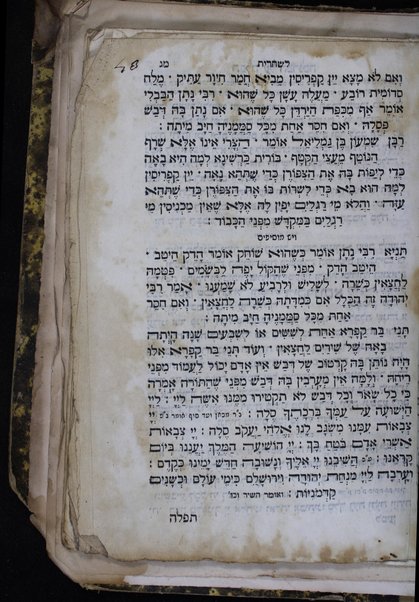 לשחרית מג
48
וְאִם לֹא מָצָא יֵין קַפְרִיסִין מֵבִיא חֲמַר חִיוַר עַתִּיק · מֶלַח
סְדוֹמִית רוֹבַע · מַעֲלֶה עָשָׁן כָּל שֶׁהוּא · רַבִּי נָתָן הַבַּבְלִי
אוֹמֵר אַף מִכִּפַּת הַיַּרְדֵּן כָּל שֶׁהוּא · אִם נָתַן בָּהּ דְּבַשׁ
פְּסָלָהּ · וְאִם חִסֵּר אַחַת מִכָּל סַמְמָנֶיהָ חַיָּב מִיתָה :
רַבָּן שִׁמְעוֹן בֶּן גַּמְלִיאֵל אוֹמֵר · הַצֳּרִי אֵינוֹ אֶלָּא שְׂרָף
הַנּוֹטֵף מֵעֲצֵי הַקְּטָף · בּוֹרִית כַּרְשִׁינָא לְמָה הִיא בָאָה
כְּדֵי לְיַפּוֹת בָּהּ אֶת הַצִּפּוֹרֶן כְּדֵי שֶׁתְּהֵא נָאָה · יֵין קַפְרִיסִין
לְמָה הוּא בָא כְּדֵי לִשְׁרוֹת בּוֹ אֶת הַצִּפּוֹרֶן כְּדֵי שֶׁתְּהֵא
עַזָּה · וַהֲלֹא מֵי רַגְלַיִם יָפִין לָהּ אֶלָּא שֶׁאֵין מַכְנִיסִין מֵי
רַגְלַיִם בַּמִּקְדָּשׁ מִפְּנֵי הַכָּבוֹד :
ויש מוסיפים
תַּנְיָא רַבִּי נָתָן אוֹמֵר כְּשֶׁהוּא שׁוֹחֵק אוֹמֵר הָדֵק הֵיטֵב ·
הֵיטֵב הָדֵק · מִפְּנֵי שֶׁהַקּוֹל יָפֶה לַבְּשָׂמִים · פִּטְּמָהּ
לַחֲצָאִין כְּשֵׁרָה · לִשְׁלִישׁ וְלִרְבִיעַ לֹא שָׁמַעְנוּ · אָמַר רַבִּי
יְהוּדָה זֶה הַכְּלָל אִם כְּמִדָּתָהּ כְּשֵׁרָה לַחֲצָאִין · וְאִם חִסֵּר
אַחַת מִכָּל סַמְמָנֶיהָ חַיָּב מִיתָה :
תָּנֵי בַּר קַפָּרָא אַחַת לְשִׁשִּׁים אוֹ לְשִׁבְעִים שָׁנָה הָיְתָה
בָאָה שֶׁל שִׁירַיִם לַחֲצָאִין · וְעוֹד תָּנֵי בַּר קַפָּרָא אִלּוּ
הָיָה נוֹתֵן בָּהּ קָרְטוֹב שֶׁל דְּבַשׁ אֵין אָדָם יָכוֹל לַעֲמוֹד מִפְּנֵי
רֵיחָהּ · וְלָמָּה אֵין מְעָרְבִין בָּהּ דְּבַשׁ מִפְּנֵי שֶׁהַתּוֹרָה אָמְרָה
כִּי כָל שְׂאֹר וְכָל דְּבַשׁ לֹא תַקְטִירוּ מִמֶּנּוּ אִשֶּׁה לַיְיָ : לַיְיָ
הַיְשׁוּעָה עַל עַמְּךָ בִרְכָתֶךָ סֶּלָה : יְיָ
צְבָאוֹת עִמָּנוּ מִשְׂגָּב לָנוּ אֱלֹהֵי יַעֲקֹב סֶלָה : יְיָ צְבָאוֹת
אַשְׁרֵי אָדָם בֹּטֵחַ בָּךְ : יְיָ הוֹשִׁיעָה הַמֶּלֶךְ יַעֲנֵנוּ בְיוֹם
קָרְאֵנוּ : הֲשִׁיבֵנוּ יְיָ אֵלֶיךָ וְנָשׁוּבָה חַדֵּשׁ יָמֵינוּ כְּקֶדֶם :
וְעָרְבָה לַיְיָ מִנְחַת יְהוּדָה וִירוּשָׁלַיִם כִּימֵי עוֹלָם וּכְשָׁנִים
קַדְמוֹנִיּוֹת : ואומר השיר וכו׳
תפלה